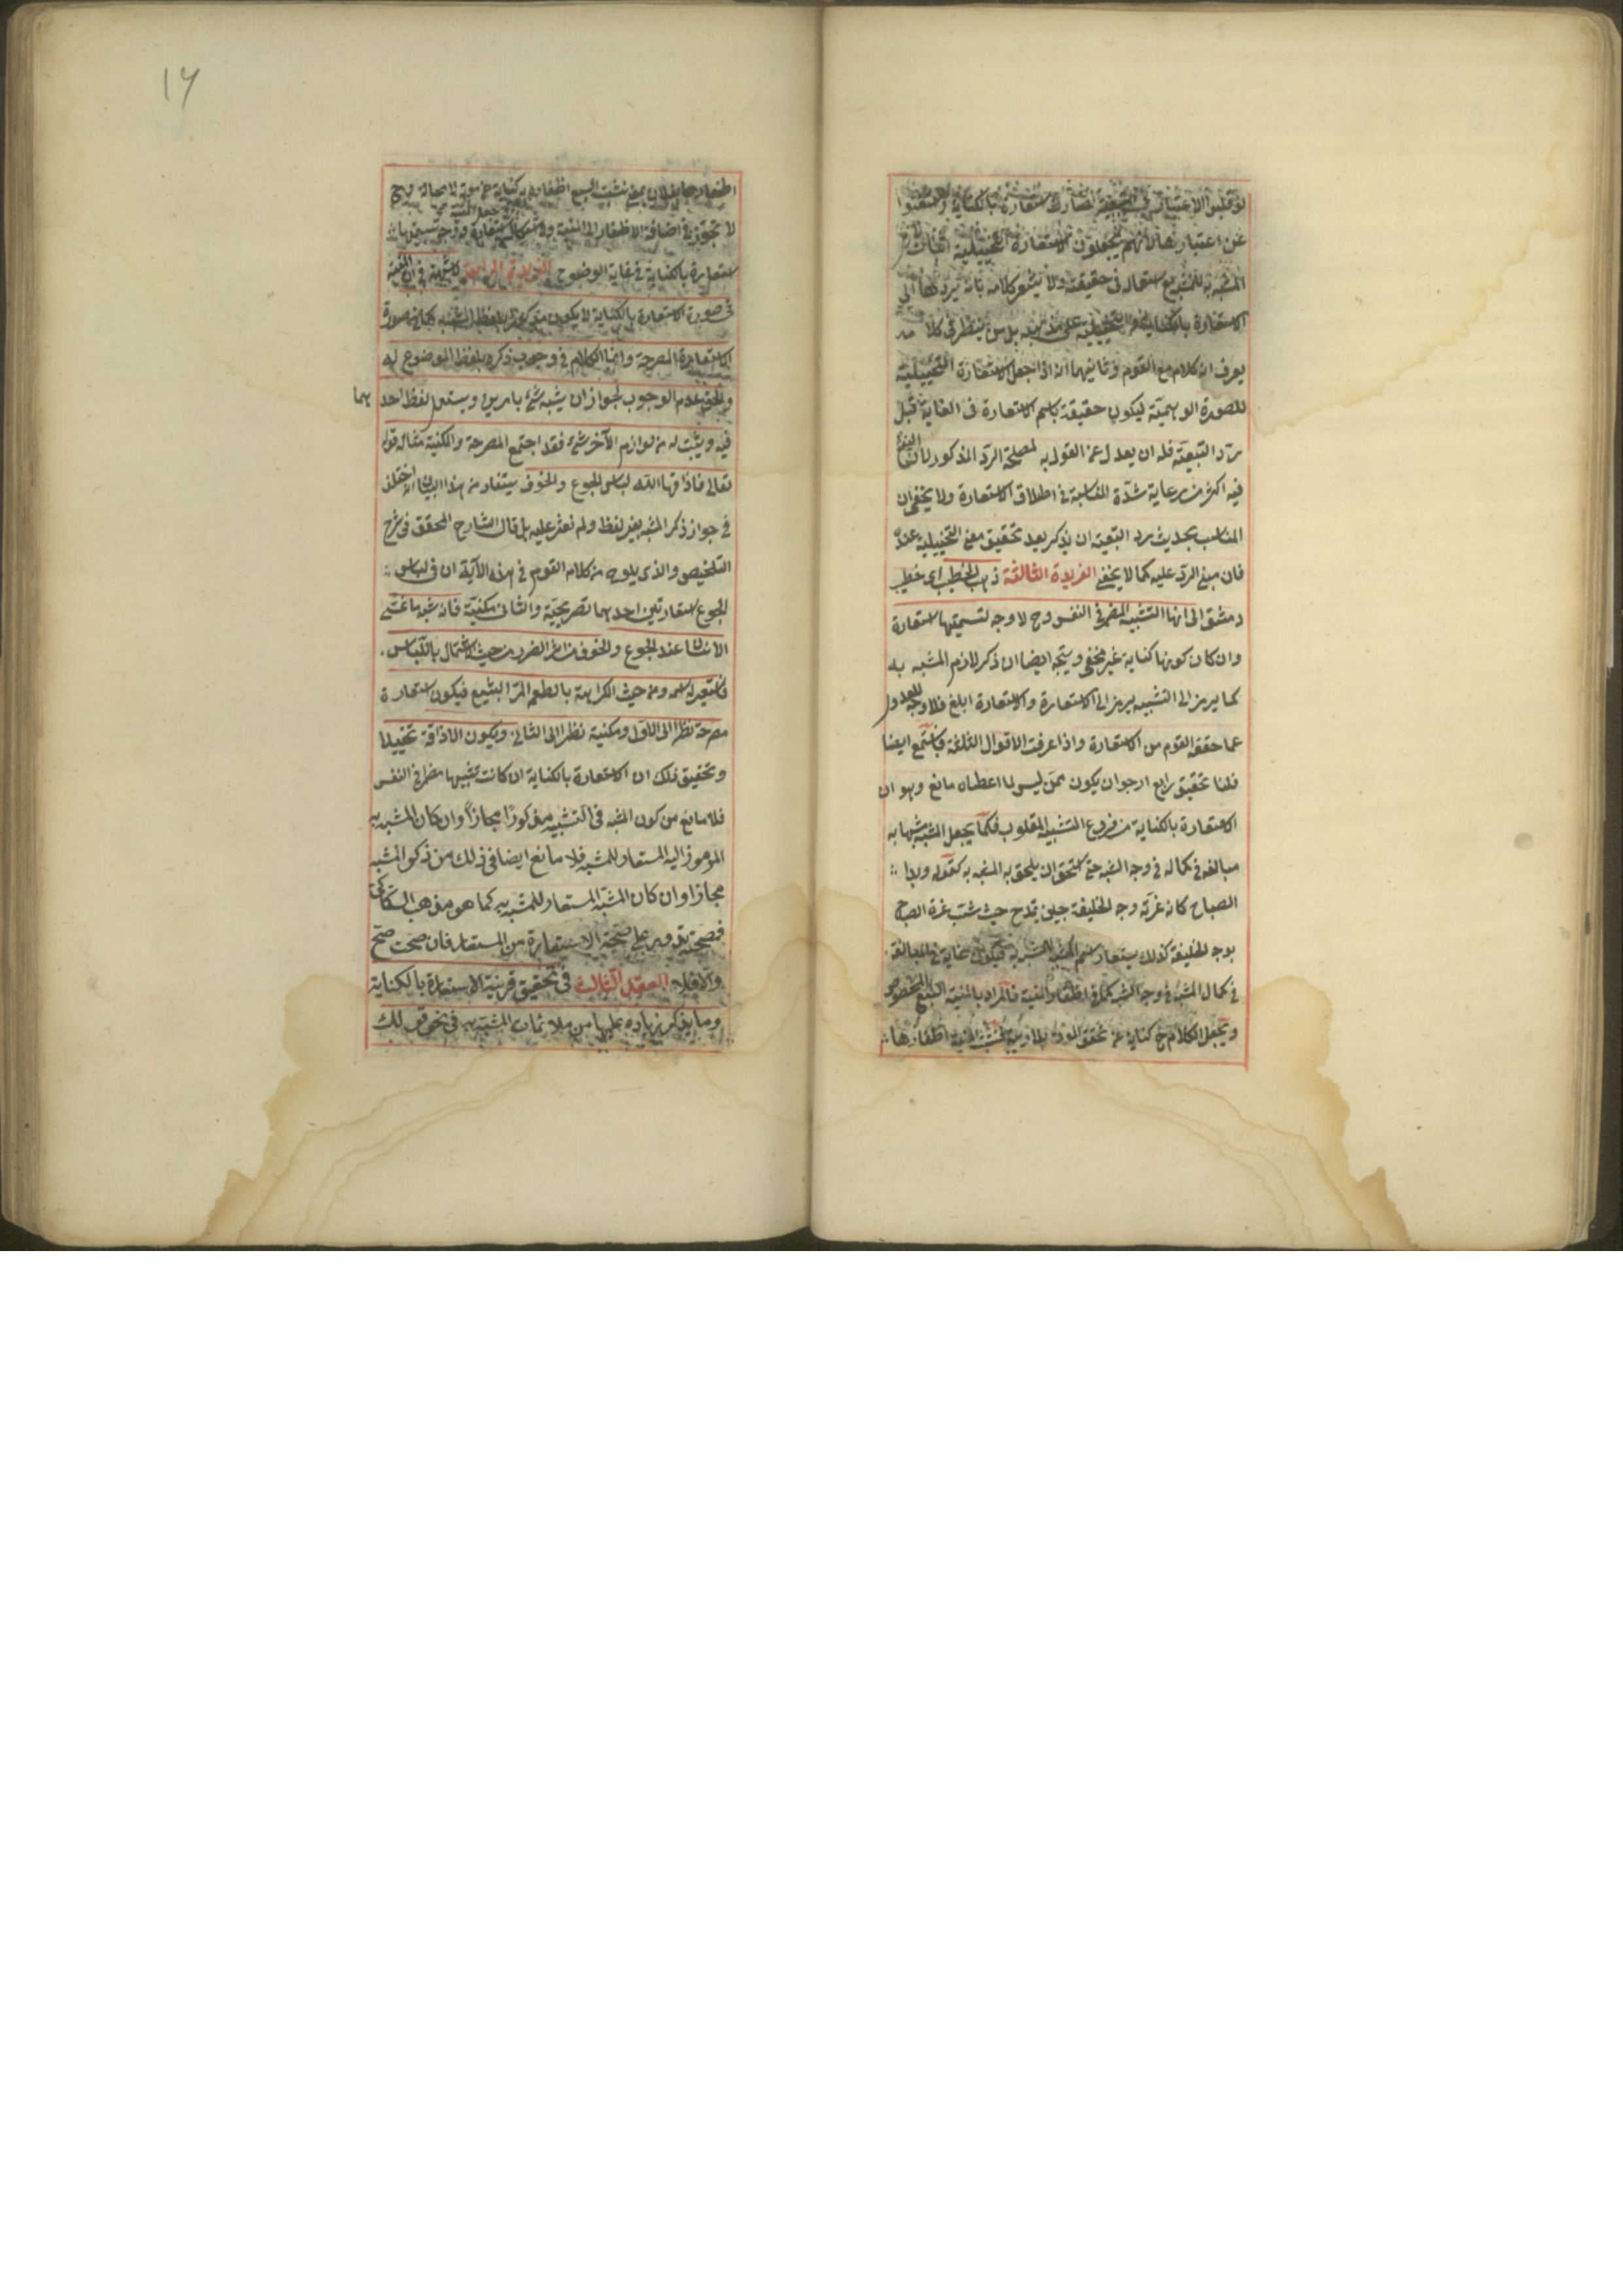 لو قلبوا الاعتبار في التبعية لصارت استعارة بالكناية واستغنوا
عن اعتبارها لانهم يجعلون الاستعارة التخييلية اثبات لازم
المشبه به للمشبه مع استعماله في حقيقته ولا يشعر كلامه بانه يردها الى
الاستعارة بالكناية والتخييلية على مذهبه بل من ينظر في كلامه
يعرف ان كلامه مع القوم وثانيهما انه اذا جعل الاستعارة التخييلية
للصورة الوهمية ليكون حقيقة باسم الاستعارة في الغاية قبل
رد التبعية فله ان يعدل عن القول به لمصلحة الرد المذكور لان النفع
فيه اكثر من رعاية شدة المناسبة في اطلاق الاستعارة ولا يخفى ان
المناسب بحديث رد التبعية ان يذكر بعد تحقيق معنى التخييلية عنده
فان مبنى الرد عليه كما لا يخفى الفريدة الثالثة ذهب الخطيب اى خطيب
دمشق الى انها التشبيه المضمر في النفس وح لا وجه لتسميتها استعارة
وان كان كونها كناية غير مخفى ويتجه ايضا ان ذكر لازم المشبه به
كما يرمز الى التشبيه يرمز الى الاستعارة والاستعارة ابلغ فلا وجه للعدول
عما حققه القوم من الاستعارة واذا عرفت الاقوال الثلثة فاستمع ايضا
فلنا تحقيق رابع ارجو ان يكون ممن ليس لما اعطاه مانع وهو ان
الاستعارة بالكناية من فروع التشبيه المقلوب فكما يجعل المشبه مشبها به
مبالغة في كماله في وجه الشبه حتى استحق ان يلحق به المشبه به كقوله وبدا
الصباح كان غرته وجه الخليفة حين يمتدح حيث شبه غرة الصباح
بوجه الخليفة كذلك يستعار اسم المشبه للمشبه به فيكون غاية في المبالغة
في كمال المشبه في وجه الشبه كما في اظفار المنية فالمراد بالمنية السبع المخصوص
ويجعل الكلام ح كناية عن تحقق الموت بلا ريب فنشبت المنية اظفارها
اظفارها بفلان بمعنى نشبت السبع اظفاره به كناية عن موته لا محالة وح
لا تجوز في اضافة الاظفار الى المنية ووجه تسميتها
استعارة بالكناية في غاية الوضوح الفريدة الرابعة لا شبهة في ان المشبه
في صورة الاستعارة بالكناية لا يكون مذكورا بلفظ المشبه به كما في صورة
الاستعارة المصرحة وانما الكلام في وجوب ذكره بلفظ الموضوع له
والحق عدم الوجوب لجواز ان يشبه شئ بامرين ويستعمل لفظ احد هما
فيه ويثبت له من لوازم الآخر شئ فقد اجتمع المصرحة والمكنية مثاله قوله
تعالى فاذاقها الله لباس الجوع والخوف يستفاد من هذا البيان اختلاف
في جواز ذكر المشبه بغير لفظ ولم نعثر عليه بل قال الشارح المحقق في شرح
التلخيص والذى يلوح من كلام القوم في هذه الآية ان في لباس
الجوع استعارتين احدهما تصريحية والثانى مكنية فانه شبه ما غشى
الانسان عند الجوع والخوف من اثر الضرر من حيث الاشتمال باللباس
فاستعير له اسمه ومن حيث الكراهة بالطعم المر البشيع فيكون استعارة
مصرحة نظرا الى الاول ومكنية نظرا الى الثانى ويكون الاذاقة تخييلا
وتحقيق ذلك ان الاستعارة بالكناية ان كانت تشبيها مضمرا في النفس
فلا مانع من كون المشبه في التشبيه مذكورا مجازا وان كان المشبه به
المرموز اليه المستعار للمشبه فلا مانع ايضا في ذلك من ذكر المشبه
مجازا وان كان المشبه المستعار للمشبه به كما هو مذهب السكاكى
فصحته تدور على صحة الاستعارة من المستعار فان صحت صح
والا فلا العقد الثالث في تحقيق قرينة الاستعارة بالكناية
وما يذكر زيادة عليها من ملائمات المشبه به في نحو قولك